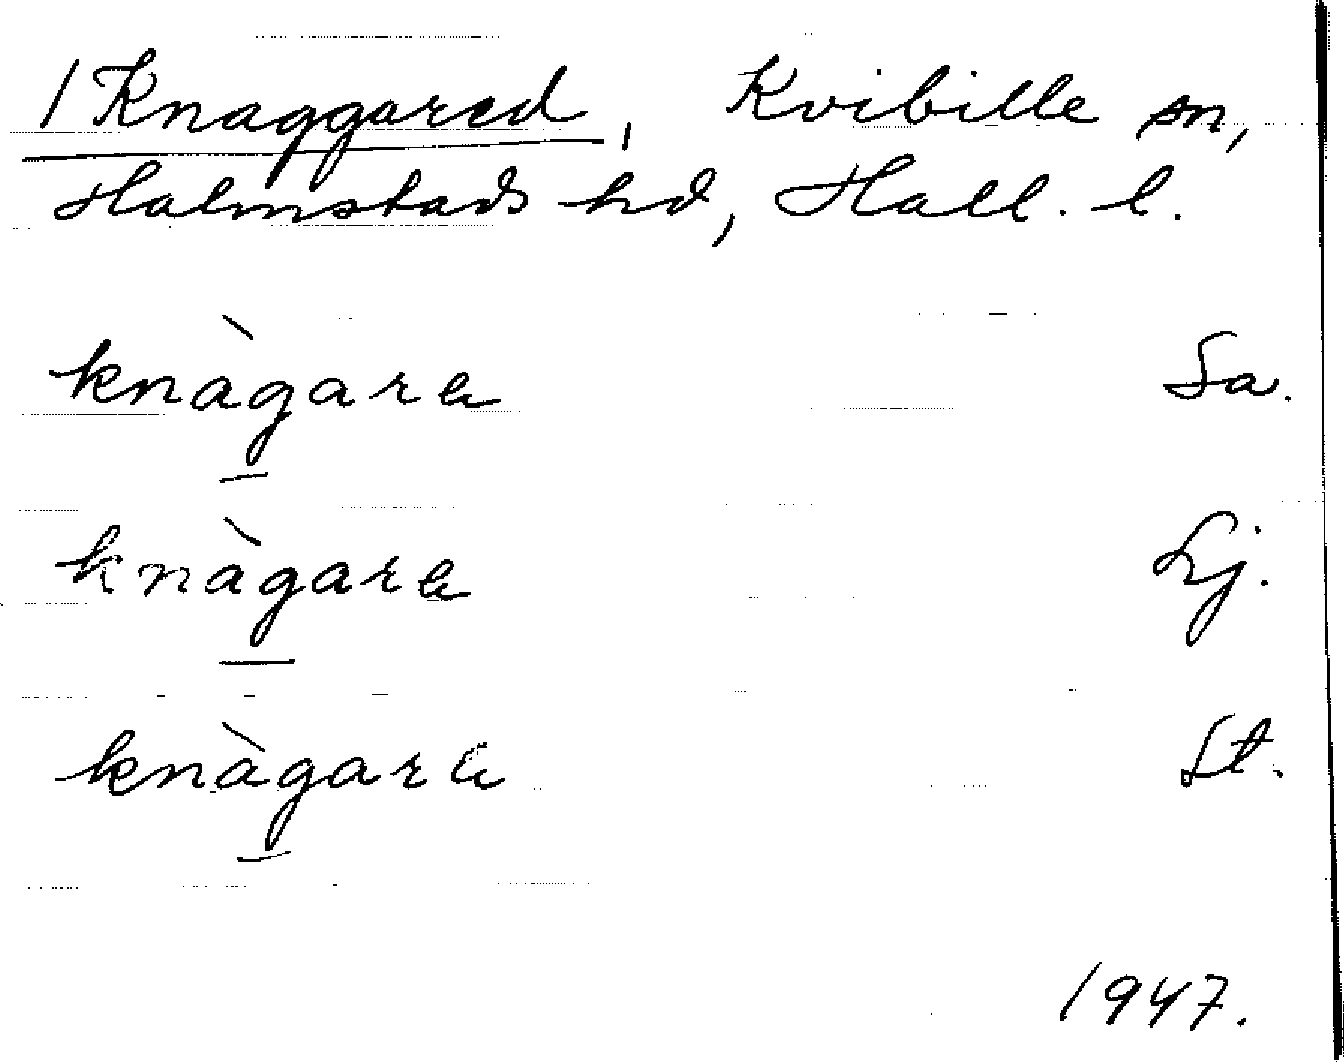 1 Knaggared, Kvibille sn,
Halmstads hd, Hall. l.
knàgare Sa.
knàgare Lj.
knàgare St.
1947.